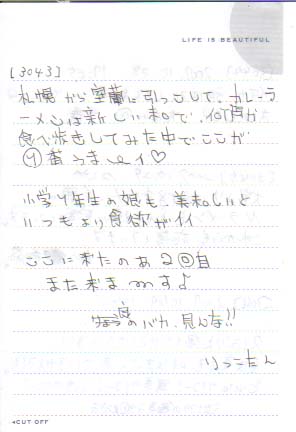 LIFE IS BEAUTIFUL
[3043]
札幌から室蘭に引っこして、カレーラ
ーメンは新しい私で、何店か
食べ歩きしてみた中でここが
1番うまーイ♡
小学1年生の娘も美味しいと
いつもより食欲がイイ
ここに来たのある回目
また来ますよ
のバカ、見んな!!
りっこたん
◂CUT OFF